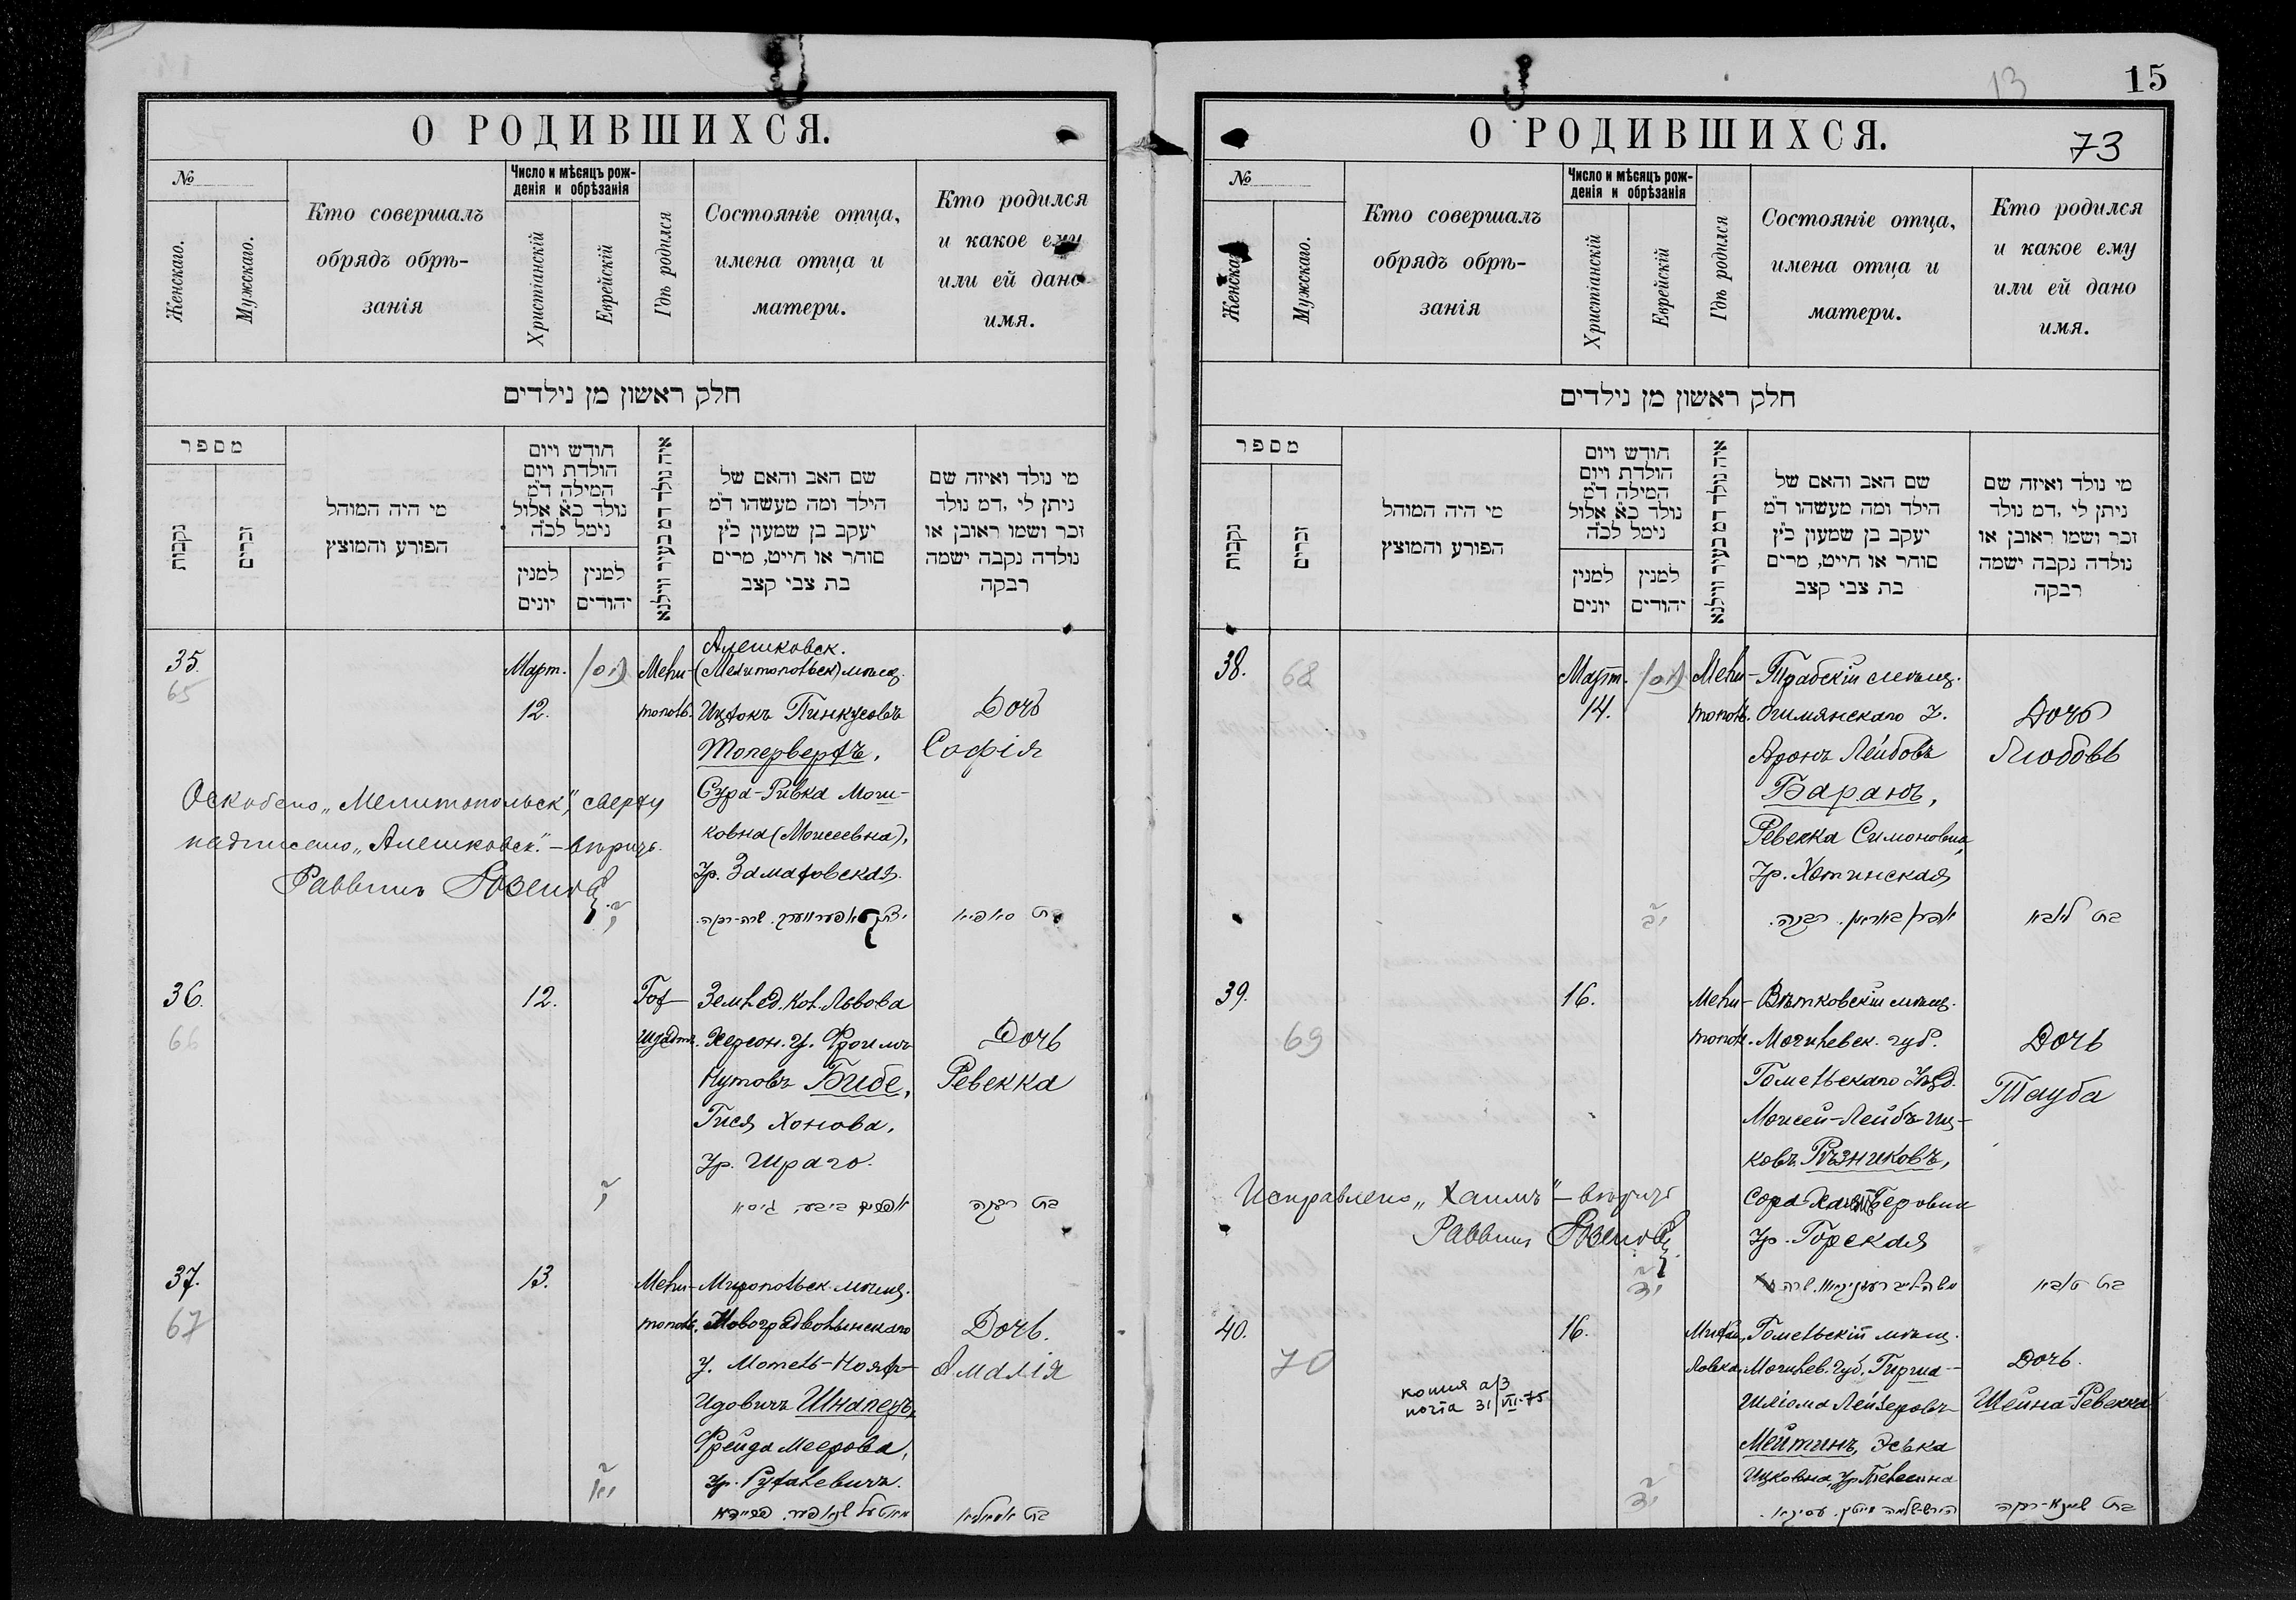 О РОДИВШИХСЯ.
№
Женскаго.
Мужскаго.
Кто совершалъ
обрядъ обрѣ-
занія
Число и мѣсяцъ рож-
денія и обрѣзанія
Христіанскій
Еврейскій
Гдѣ родился
Состояніе отца,
имена отца и
матери.
Кто родился
и какое ему
или ей дано
имя.
חלק ראשון מן נילדים
מספר
נקבות
זכרים
מי היה המוהל
הפורע והמוצץ
חודש ויום
הולדת ויום
המילה ד״מ
נולד כ״א אלול
נימל לכ״ה
למנין
יונים
למנין
יהודים
איה נולד דמ בעיר ווילנא
שם האב והאם של
הילד ומה מעשהו ד״מ
יעקב בן שמעון כ״ץ
סוחר או חייט, מרים
בת צבי קצב
מי נולד ואיזה שם
ניתן לי ,דמ נולד
זכר ושמו ראובן או
נולדה נקבה ישמה
רבקה
35.
65
Март.
12.
Мели-
тополь.
Алешковск.
(Мелитопольск) мѣщ.
Ицхокъ Пинкусовъ
Топервертъ,
Сура-Ривка Моши-
ковна (Моисеевна),
ур.
Дочь
Софія
Оскоблено „Мелитопольск“, сверху
надписано „Алешковск.“ — вѣрно.
Раввинъ
שרה-רבקה.
בת סאפיא
36.
66
12.
Зем. ед. кол. Львова
Херсон. у. Фроимъ
Нутовъ Бибе,
Гися Хонова,
ур. Шраго.
Дочь
Ревекка
אפרים ביבע, גיסא
בת רבקה
37.
67
13.
Мели-
тополь.
Миропольск. мѣщ.
Новоградволынскаго
у. Мотель-
Идовичъ Шнаперъ,
Фрейда Меерова,
ур.
Дочь.
Амалія
בת אמאליא
15
13
О РОДИВШИХСЯ.
73
№
Женскаго.
Мужскаго.
Кто совершалъ
обрядъ обрѣ-
занія
Число и мѣсяцъ рож-
денія и обрѣзанія
Христіанскій
Еврейскій
Гдѣ родился
Состояніе отца,
имена отца и
матери.
Кто родился
и какое ему
или ей дано
имя.
חלק ראשון מן נילדים
מספר
נקבות
זכרים
מי היה המוהל
הפורע והמוצץ
חודש ויום
הולדת ויום
המילה ד״מ
נולד כ״א אלול
נימל לכ״ה
למנין
יונים
למנין
יהודים
איה נולד דמ בעיר ווילנא
שם האב והאם של
הילד ומה מעשהו ד״מ
יעקב בן שמעון כ״ץ
סוחר או חייט, מרים
בת צבי קצב
מי נולד ואיזה שם
ניתן לי ,דמ נולד
זכר ושמו ראובן או
נולדה נקבה ישמה
רבקה
38.
68
Март.
14.
Мели-
тополь.
Трабскій мѣщ.
Ошмянскаго у.
Аронъ Лейбовъ
Баранъ,
Ревекка Симоновна,
ур. Хотинская
Дочь
Любовь
רבקה.
בת ליובא
39.
69
16.
Мели-
тополь.
Вѣтковскій мѣщ.
Могилевск. губ.
Гомельскаго уѣзд.
Моисей-Лейбъ Иц-
ковъ Рѣзниковъ,
Сора-
ур. Горская
Дочь
Тауба
Исправлено „Хаимъ“ — вѣрно
Раввинъ
בת טובא
40.
70
16.
Гомельскій мѣщ.
Могилев. губ. Гирша-
Шліома Лейзеровъ
Мейтинъ, Эська
Ицковна, ур.
Дочь.
Шейна-Ревекка
копия а/з
почта 31/VII-75
בת שיינא-רבקה